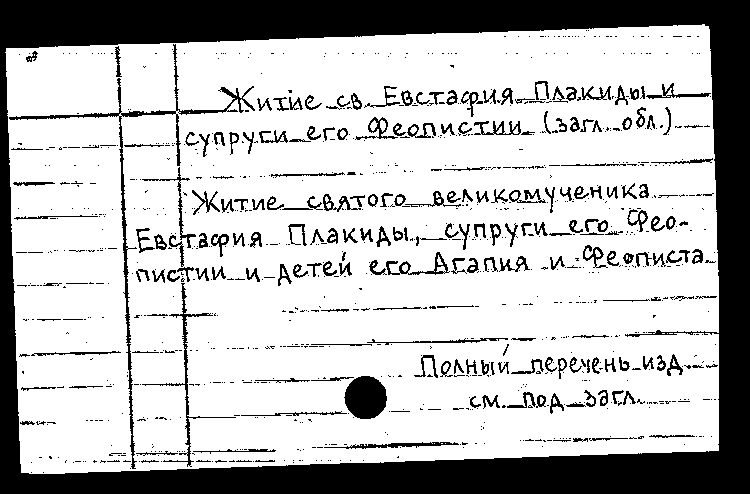 Житие св. Евстафия Плакиды и
супруги его Феопистии (загл. обл.)
Житие святого великомученика
Евстафия Плакиды, супруги его Фео-
пистии и детей его Агапия и Феописта.
Полный перечень изд.
см. под загл.